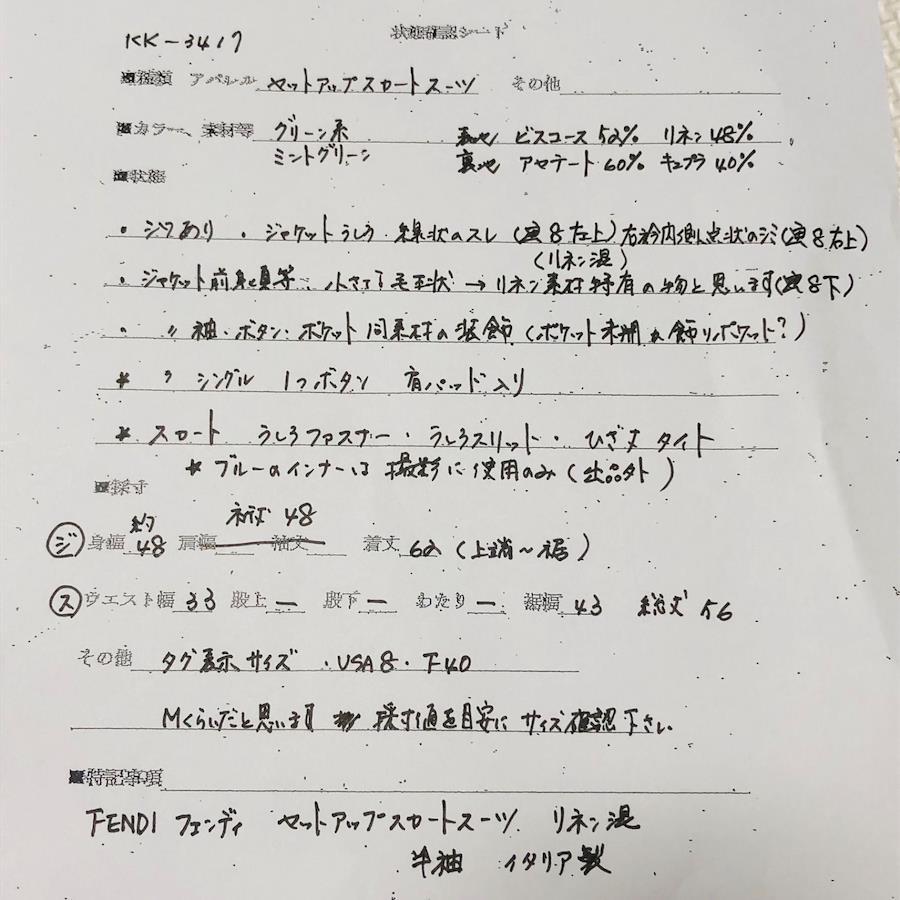 KK-3417
状態確認シート
■種類 アパレル セットアップスカートスーツ その他
■カラー、素材等 グリーン系 表地 ビスコース52% リネン48%
ミントグリーン 裏地 アセテート60% キュプラ40%
■状態
・シワあり ・ジャケットうしろ・線状のスレ(写8左上)右衿内側点状のシミ(写8右上)
(リネン混)
・ジャケット前身頃等・小さな毛玉状→リネン素材特有の物と思います(写8下)
・ 〃 袖・ボタン・ポケット同素材の装飾(ポケット未開 か飾りポケット?)
* 〃 シングル 1つボタン 肩パッド入り
* スカート うしろファスナー・うしろスリット・ひざ丈 タイト
* ブルーのインナーは撮影に使用のみ(出品外)
■採寸
約 裄丈 48
ジ 身幅 48 肩幅 袖丈 着丈 62(上端〜裾)
ス ウエスト幅 33 股上 ー 股下 ー わたり ー 裾幅 43 総丈 56
その他 タグ表示サイズ ・USA8・F40
Mくらいだと思います 採寸値を目安にサイズ確認下さい
■特記事項
FENDI フェンディ セットアップスカートスーツ リネン混
半袖 イタリア製